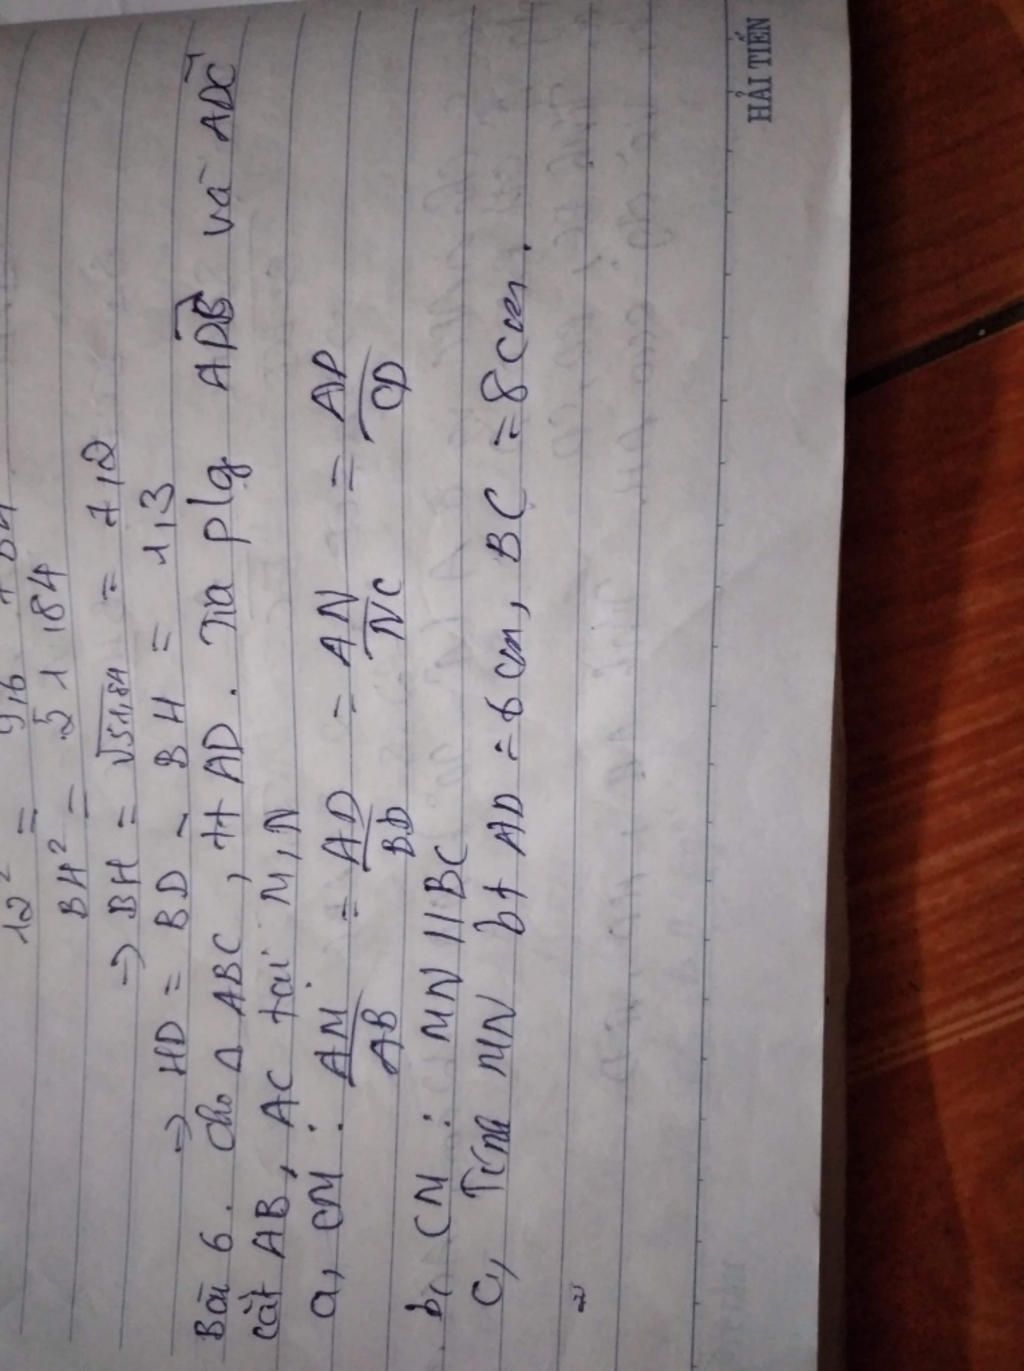 12² = 9,6
BH² = 51,84
=> BH = √51,84 = 7,2
=> HD = BD - BH = 1,3
Bài 6. Cho Δ ABC, tt AD. Tia plg ADB và ADC
cắt AB, AC tại M, N
a, CM: AM/AB = AD/BD = AN/NC = AD/CD
b, CM: MN // BC
c, Tính MN bt AD = 6 cm, BC = 8 cm.
HẢI TIẾN